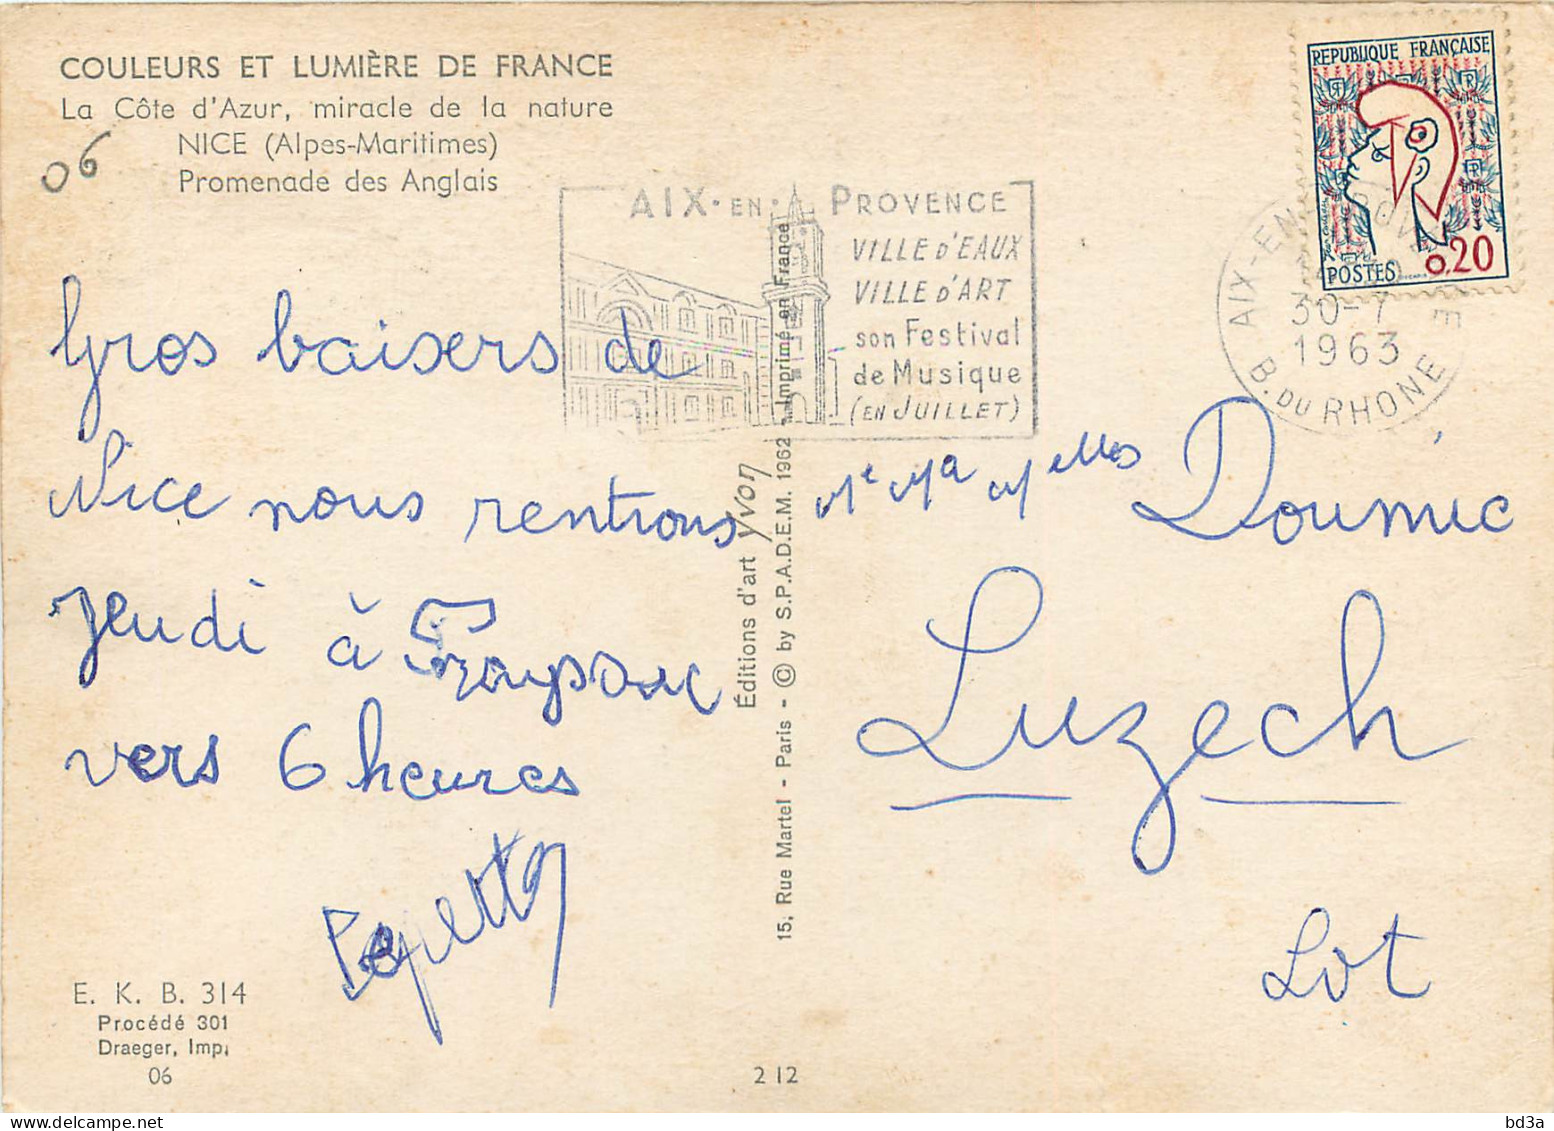 COULEURS ET LUMIÈRE DE FRANCE
La Côte d'Azur, miracle de la nature
NICE (Alpes-Maritimes)
Promenade des Anglais
06
REPUBLIQUE FRANÇAISE
POSTES
0,20
AIX-EN-PROVENCE
VILLE D'EAUX
VILLE D'ART
son Festival
de Musique
(EN JUILLET)
AIX-EN-PROVENCE
30-7
1963
B. DU RHONE
Gros baisers de
Nice nous rentrons
jeudi à
vers 6 heures
Editions d'art Yvon
15, Rue Martel - Paris - © by S.P.A.D.E.M. 1962 - Imprimé en France
Doumic
Luzech
Lot
E. K. B. 314
Procédé 301
Draeger, Imp.
06
2 12
bd3a